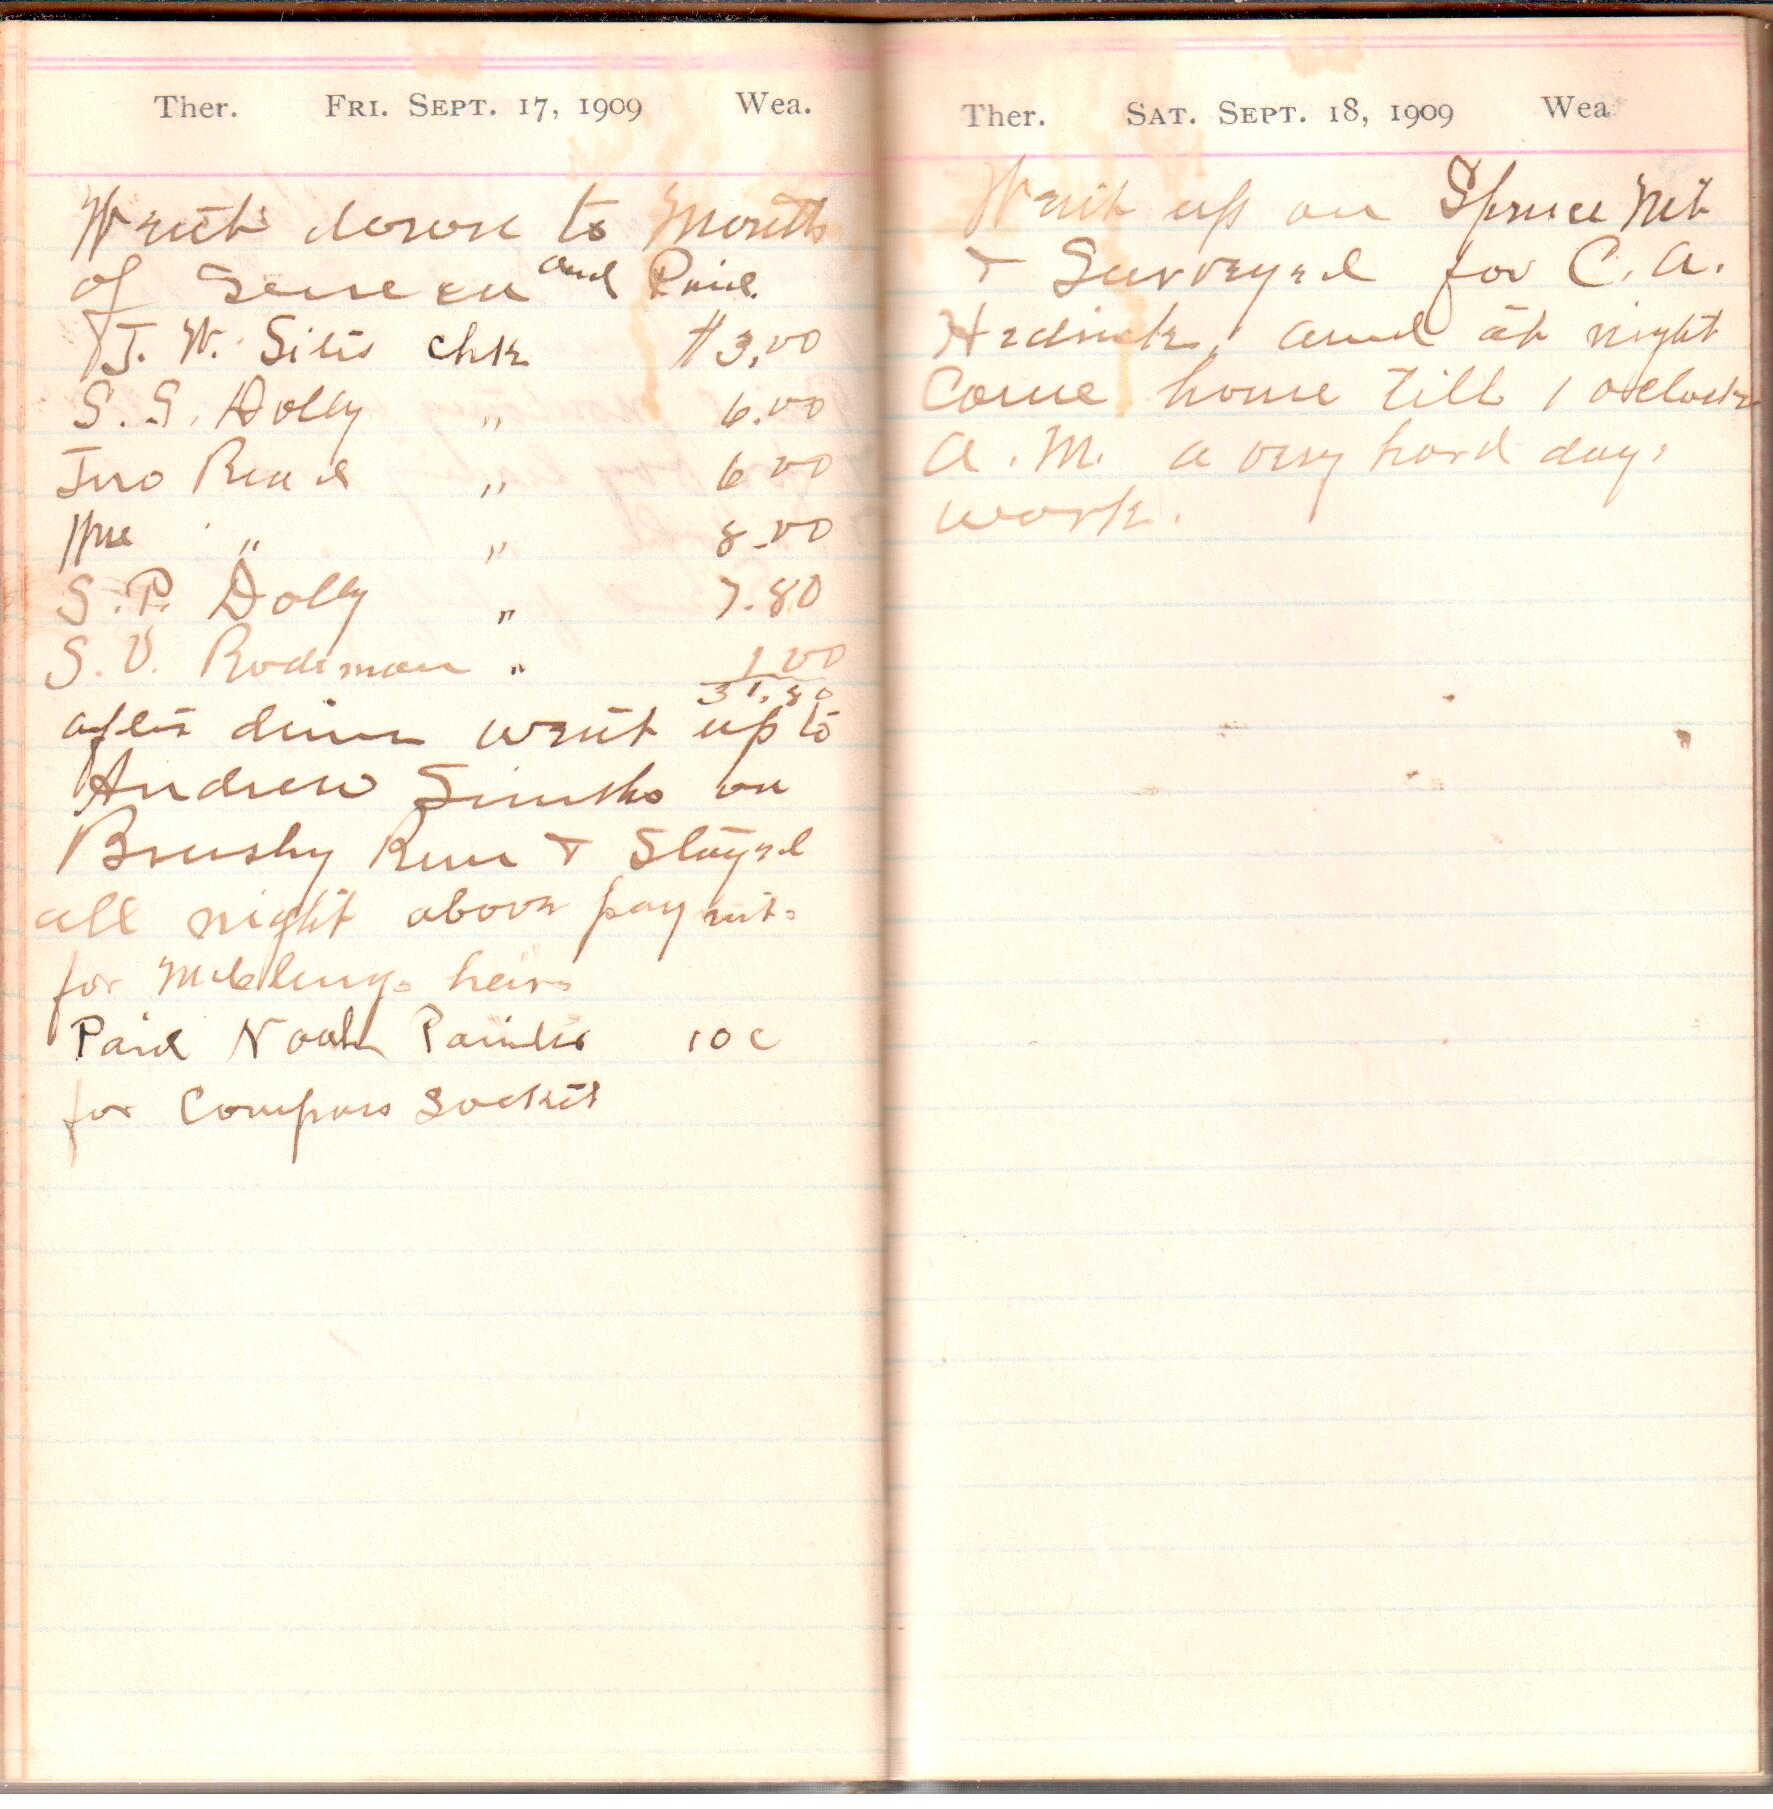 Ther. FRI. SEPT. 17, 1909 Wea.
Went down to Mouth
of Seneca and Paid
J. W. Sites chk $3.00
S. S. Dolly " 6.00
Jno Read " 6 00
Wm " " 8.00
S. P. Dolly " 7.80
S. V. Rodeman " 1 00
31.80
after dinn went up to
Andrew on
Brushy Run & Stayed
all night above paymts
for heirs
Paid Noah Painter 10 c
for Compass Socket
Ther. SAT. SEPT. 18, 1909 Wea
Went up on Spruce Mt
& Surveyed for C. A.
Hedrick, and at night
Come home till 1 oclock
A. M. a very hard days
work.